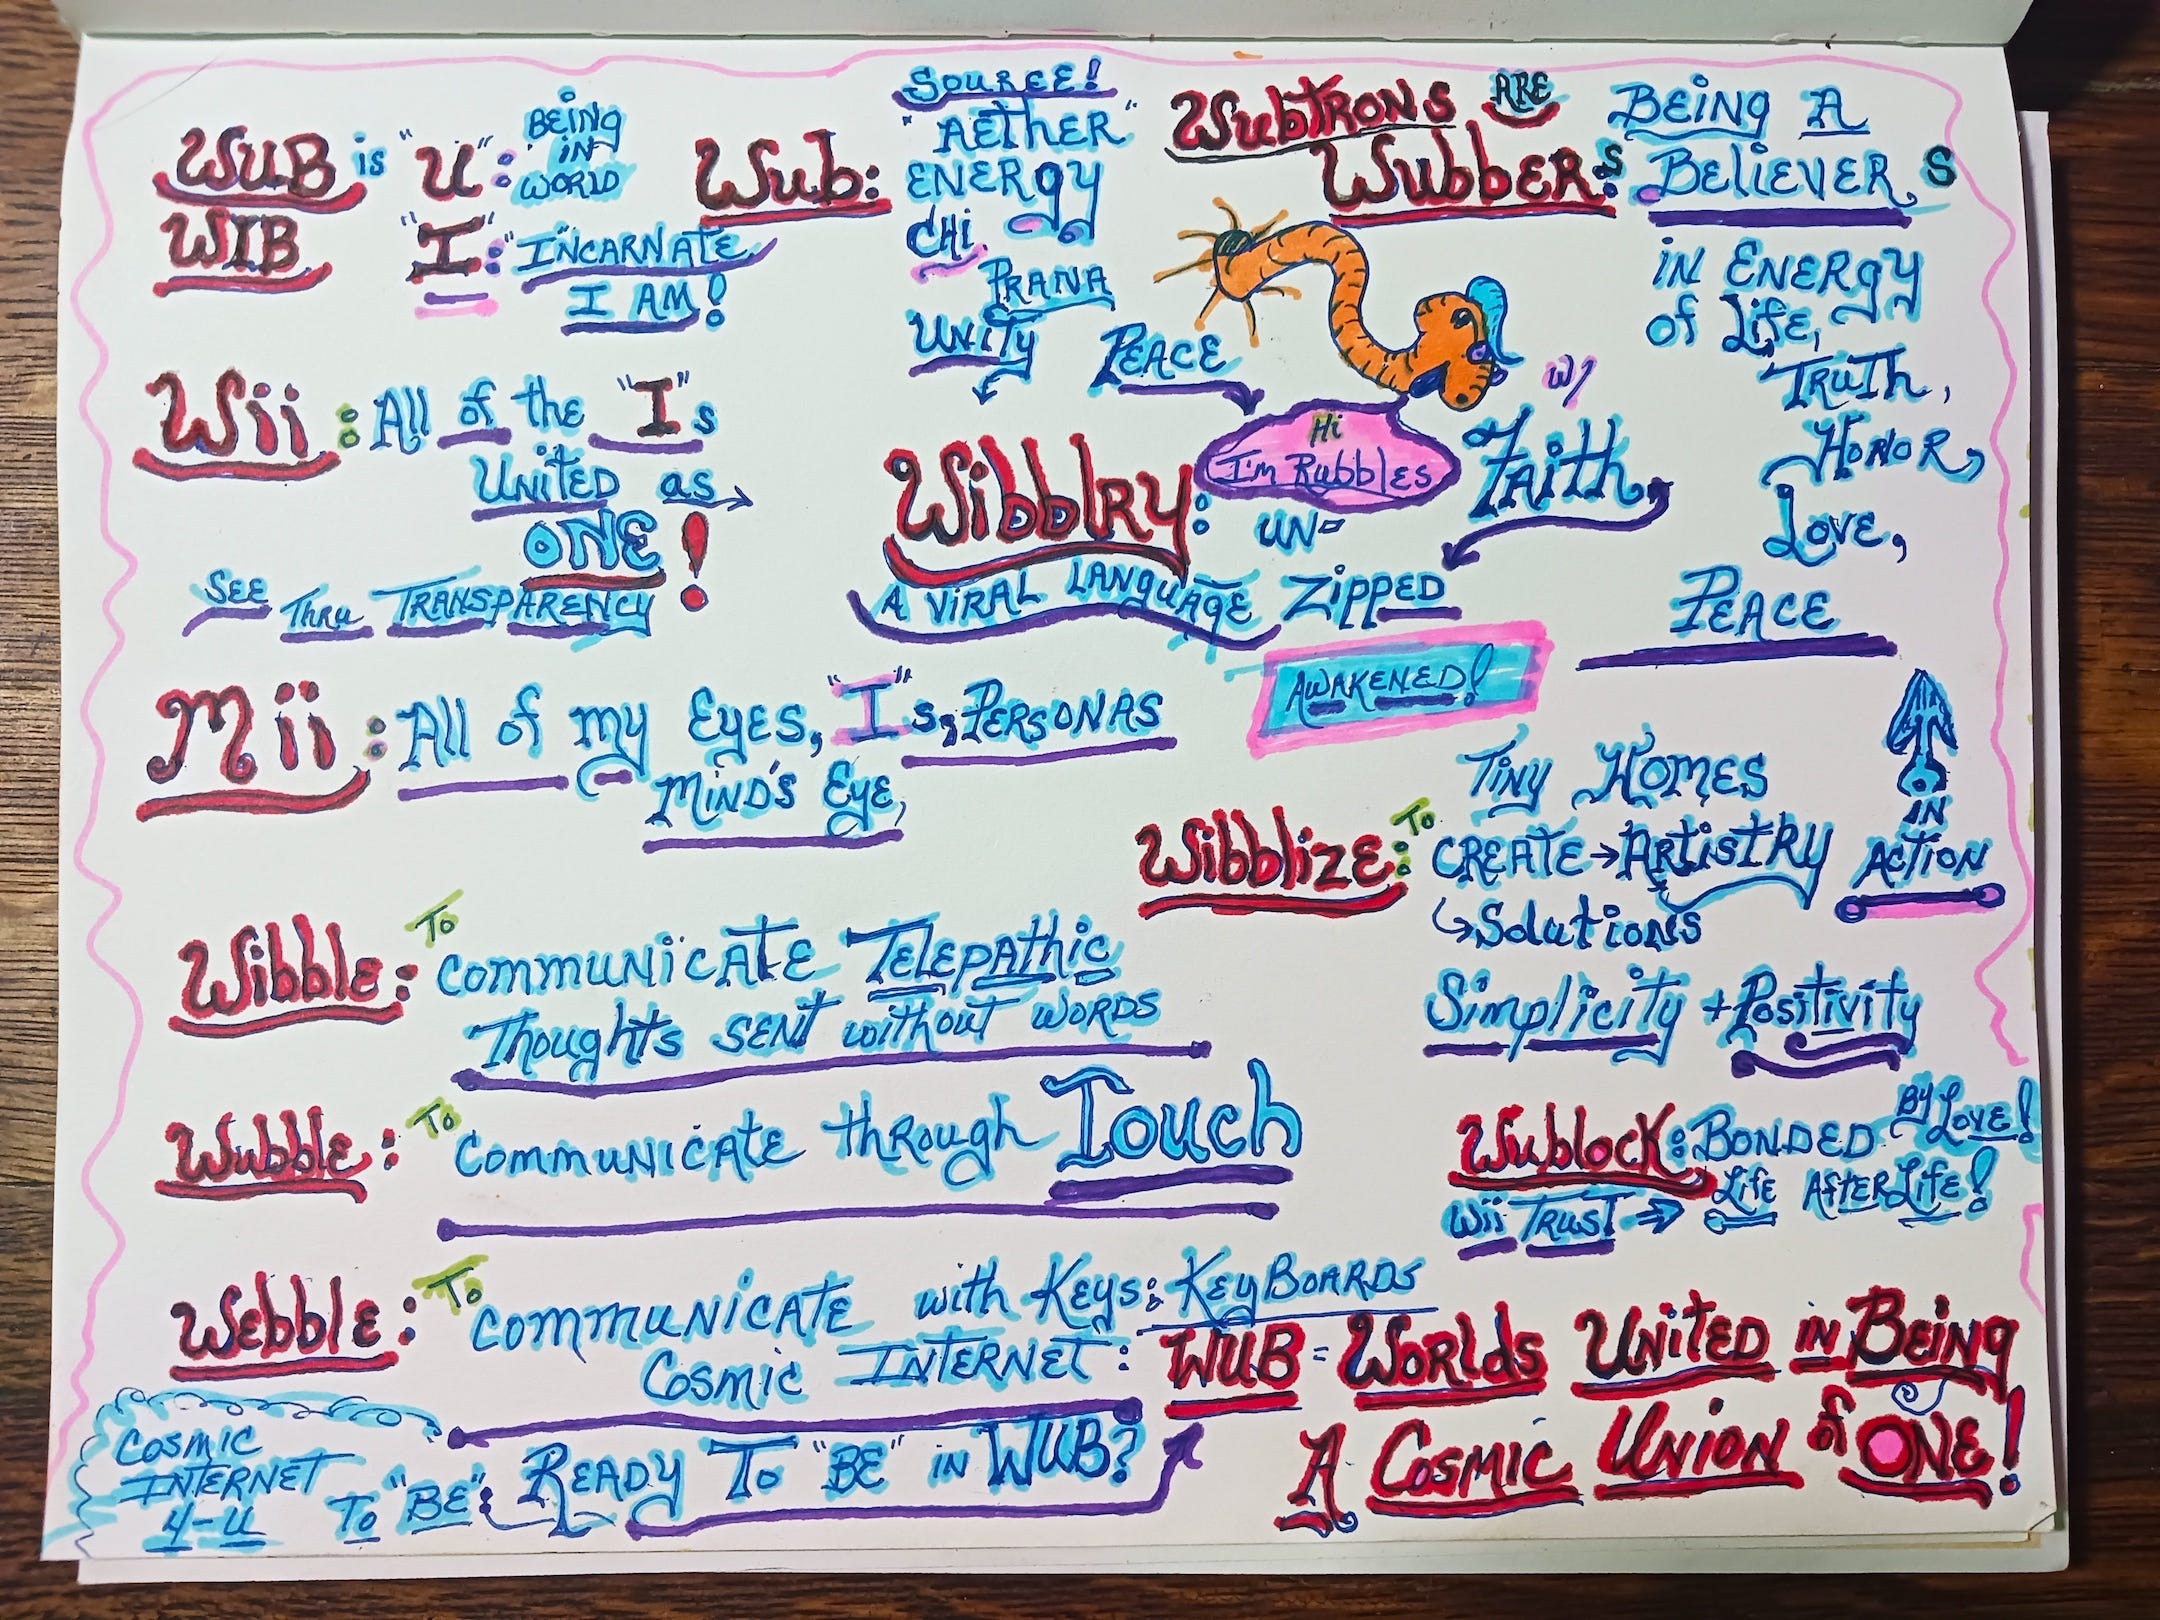 WUB is "U": BEING IN WORLD
WIB "I": "INCARNATE
I AM!
Wii: All of the "I"s
UNITED as
ONE!
SEE THRU TRANSPARENCY
Mii: All of my EyEs, "I"s, PERSONAS
MIND'S EyE,
Wibble: To COMMUNICATE TELEPAThic
Thoughts SENT without WORDS
Wubble: To COMMUNICATE thRough Touch
Webble: To COMMUNICATE with KEys: KEyBOARDS
Cosmic INTERNET:
COSMIC INTERNET 4-U
To "BE": READY To "BE" in WUB?
Wub: SOURCE!
"AETHER"
ENERgy
CHi
PRANA
UNITy PEACE
Hi
I'm RubblEs
w/
FAith,
WibblRy: UN-
A VIRAL LANGUAGE ZippED
AWAKENED!
WubTRONS ARE
WubbERs: BEiNg A
BEliEVERs
iN ENERgy
of LifE,
TRuTh,
HONOR,
LOVE,
PEACE
Wibblize: To Tiny HOMES
CREATE → ARTISTRY IN ACTION
Solutions
Simplicity + Positivity
WublocK: BONDED By LOVE!
Wii TRUST → LifE AfTER LifE!
WUB = WORlds UNITED iN BEiNg
A COSMiC UNiON of ONE!